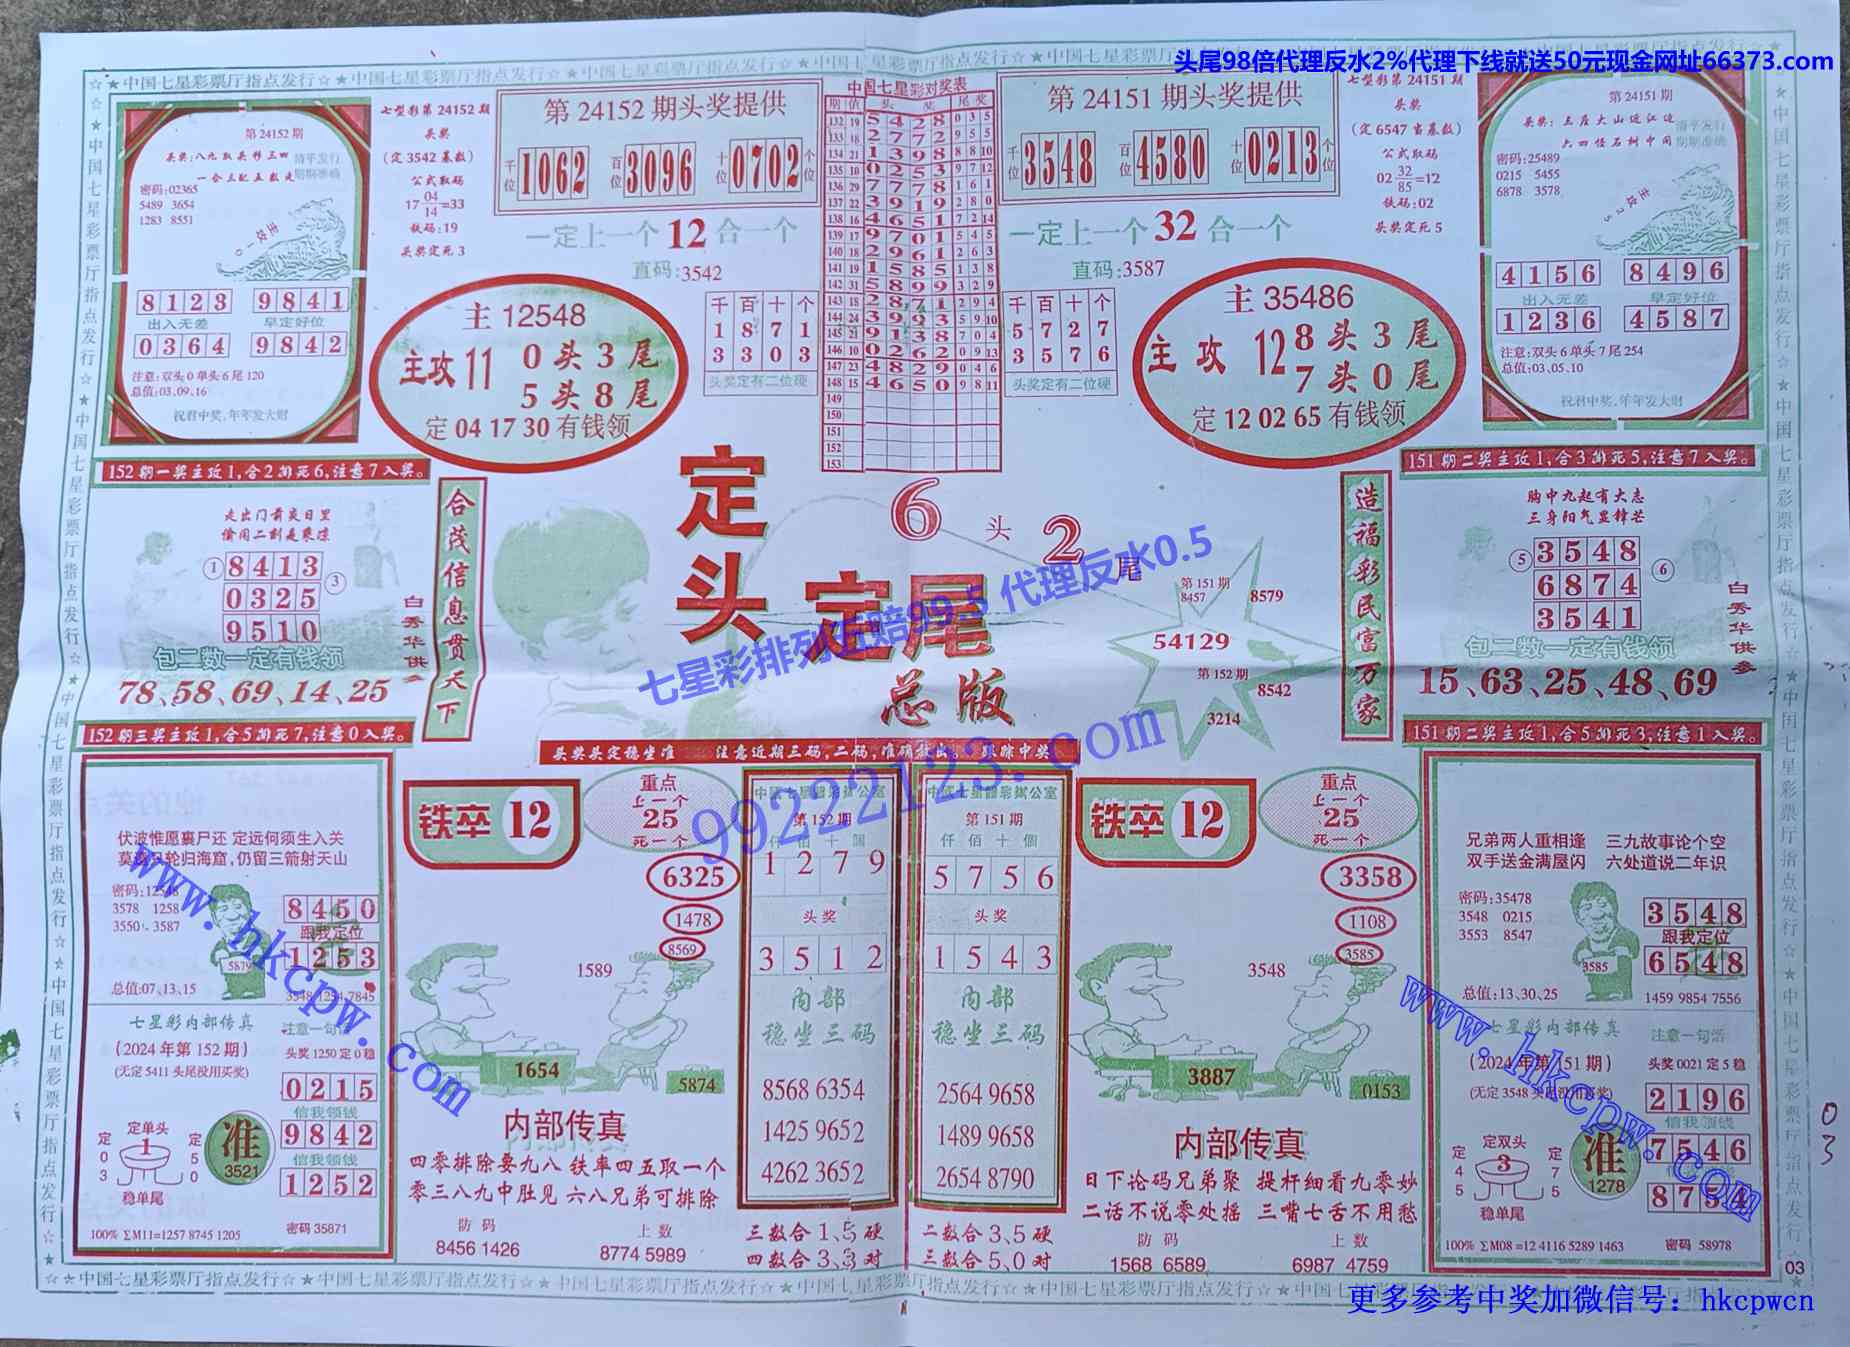 头尾98倍代理反水2%代理下线就送50元现金网址66373.com
☆★中国七星彩票厅指点发行☆★中国七星彩票厅指点发行☆★
第 24152 期
头奖:八九取头移三四
一合三配五数走
清平发行
期期准确
密码:02365
5489 3654
1283 8551
主攻10
8123 9841
出入无差 早定好位
0364 9842
注意:双头0单头6尾120
总值:03,09,16
祝君中奖,年年发大财
七型彩第 24152 期
头奖
(定 3542 基数)
公式取码
17 04/14 =33
铁码:19
头奖定死 3
第 24152 期头奖提供
千位 1062 百位 3096 十位 0702 个位
一定上一个 12 合一个
直码:3542
主 12548
主攻 11 0 头 3 尾
5 头 8 尾
定 04 17 30 有钱领
千 百 十 个
1 8 7 1
3 3 0 3
头奖定有二位硬
中国七星彩对奖表
期 值 头 奖 尾 奖
132 19 5 4 2 8 0 3 5
133 18 2 7 7 2 9 5 5
134 21 1 3 9 8 8 8 10
135 10 0 2 5 3 9 7 12
136 29 7 7 7 8 1 6 1
137 22 3 9 1 9 2 8 0
138 16 4 6 5 1 7 2 14
139 17 9 7 0 1 5 4 5
140 18 2 9 6 1 2 6 3
141 19 1 5 8 5 1 3 8
142 31 5 8 9 9 3 2 9
143 18 2 8 7 1 2 9 4
144 24 3 9 9 3 5 9 10
145 21 9 1 3 8 7 0 4
146 10 0 2 6 2 0 9 13
147 23 4 8 2 9 0 4 6
148 15 4 6 5 0 9 8 11
149
150
151
152
153
第 24151 期头奖提供
千位 3548 百位 4580 十位 0213 个位
一定上一个 32 合一个
直码:3587
千 百 十 个
5 7 2 7
3 5 7 6
头奖定有二位硬
主 35486
主 攻 12 8 头 3 尾
7 头 0 尾
定 12 02 65 有钱领
七型彩第 24151 期
头奖
(定 6547 当基数)
公式取码
02 32/85 =12
铁码:02
头奖定死 5
第 24151 期
头奖:三座大山近江边
六四怪石树中间
清平发行
期期准确
密码:25489
0215 5455
6878 3578
主攻25
4156 8496
出入无差 早定好位
1236 4587
注意:双头6单头7尾254
总值:03,05,10
祝君中奖,年年发大财
152期一奖主攻1,合2捌死6,注意7入奖。
走出门前炎日里
偷闲二刻是乘凉
① 8413 ③
0325
9510
包二数一定有钱领
78、58、69、14、25
白秀华供参
合茂信息贯天下
定头
定尾
总版
6 头 2 尾
第 151 期
8457 8579
54129
第 152 期
8542
3214
造福彩民富万家
151期二奖主攻1,合3捌死5,注意7入奖。
胸中九起有大志
三身阳气显锋芒
⑤ 3548 ⑥
6874
3541
包二数一定有钱领
15、63、25、48、69
白秀华供参
七星彩排列五赔99.5 代理反水0.5
99222123.com
152期三奖主攻1,合5捌死7,注意0入奖。
伏波惟愿裹尸还 定远何须生入关
莫遣只轮归海窟,仍留三箭射天山
密码:12548
3578 1258
3550 3587
5879
总值:07,13,15
8450
跟我定位
1253
3548 1254 7845
七星彩内部传真
(2024 年第 152 期)
(无定 5411 头尾没用买奖)
注意一句话
头奖 1250 定 0 稳
0215
信我领钱
9842
信我领钱
1252
定单头
定03 1 定50
稳单尾
准
3521
100% ∑M11=1257 8745 1205
密码 35871
头奖头定稳坐准 注意近期三码,二码,准确 跟踪中奖
铁卒 12
重点
上一个
25
死一个
6325
1478
8569
1589
1654
5874
内部传真
四零排除要九八 铁率四五取一个
零三八九中肚见 六八兄弟可排除
防码 上数
8456 1426 8774 5989
第 152 期
仟 佰 十 個
1 2 7 9
头奖
3 5 1 2
内部
稳坐三码
8568 6354
1425 9652
4262 3652
三数合 1、5 硬
四数合 3、3 对
第 151 期
仟 佰 十 個
5 7 5 6
头奖
1 5 4 3
内部
稳坐三码
2564 9658
1489 9658
2654 8790
二数合 3、5 硬
三数合 5、0 对
铁卒 12
重点
上一个
25
死一个
3358
1108
3585
3548
3887
0153
内部传真
日下论码兄弟聚 提杆细看九零妙
二话不说零处摇 三嘴七舌不用愁
防码 上数
1568 6589 6987 4759
151期二奖主攻1,合5捌死3,注意1入奖。
兄弟两人重相逢 三九故事论个空
双手送金满屋闪 六处道说二年识
密码:35478
3548 0215
3553 8547
3585
总值:13,30,25
3548
跟我定位
6548
1459 9854 7556
七星彩内部传真
(2024 年第 151 期)
(无定 3548 头尾没用买奖)
注意一句话
头奖 0021 定 5 稳
2196
信我领钱
7546
8754
定双头
定45 3 定75
稳单尾
准
1278
100% ∑M08 =12 4116 5289 1463
密码 58978
03
03
www.hkcpw.com
www.hkcpw.com
☆★中国七星彩票厅指点发行☆★中国七星彩票厅指点发行☆★
更多参考中奖加微信号：hkcpwcn